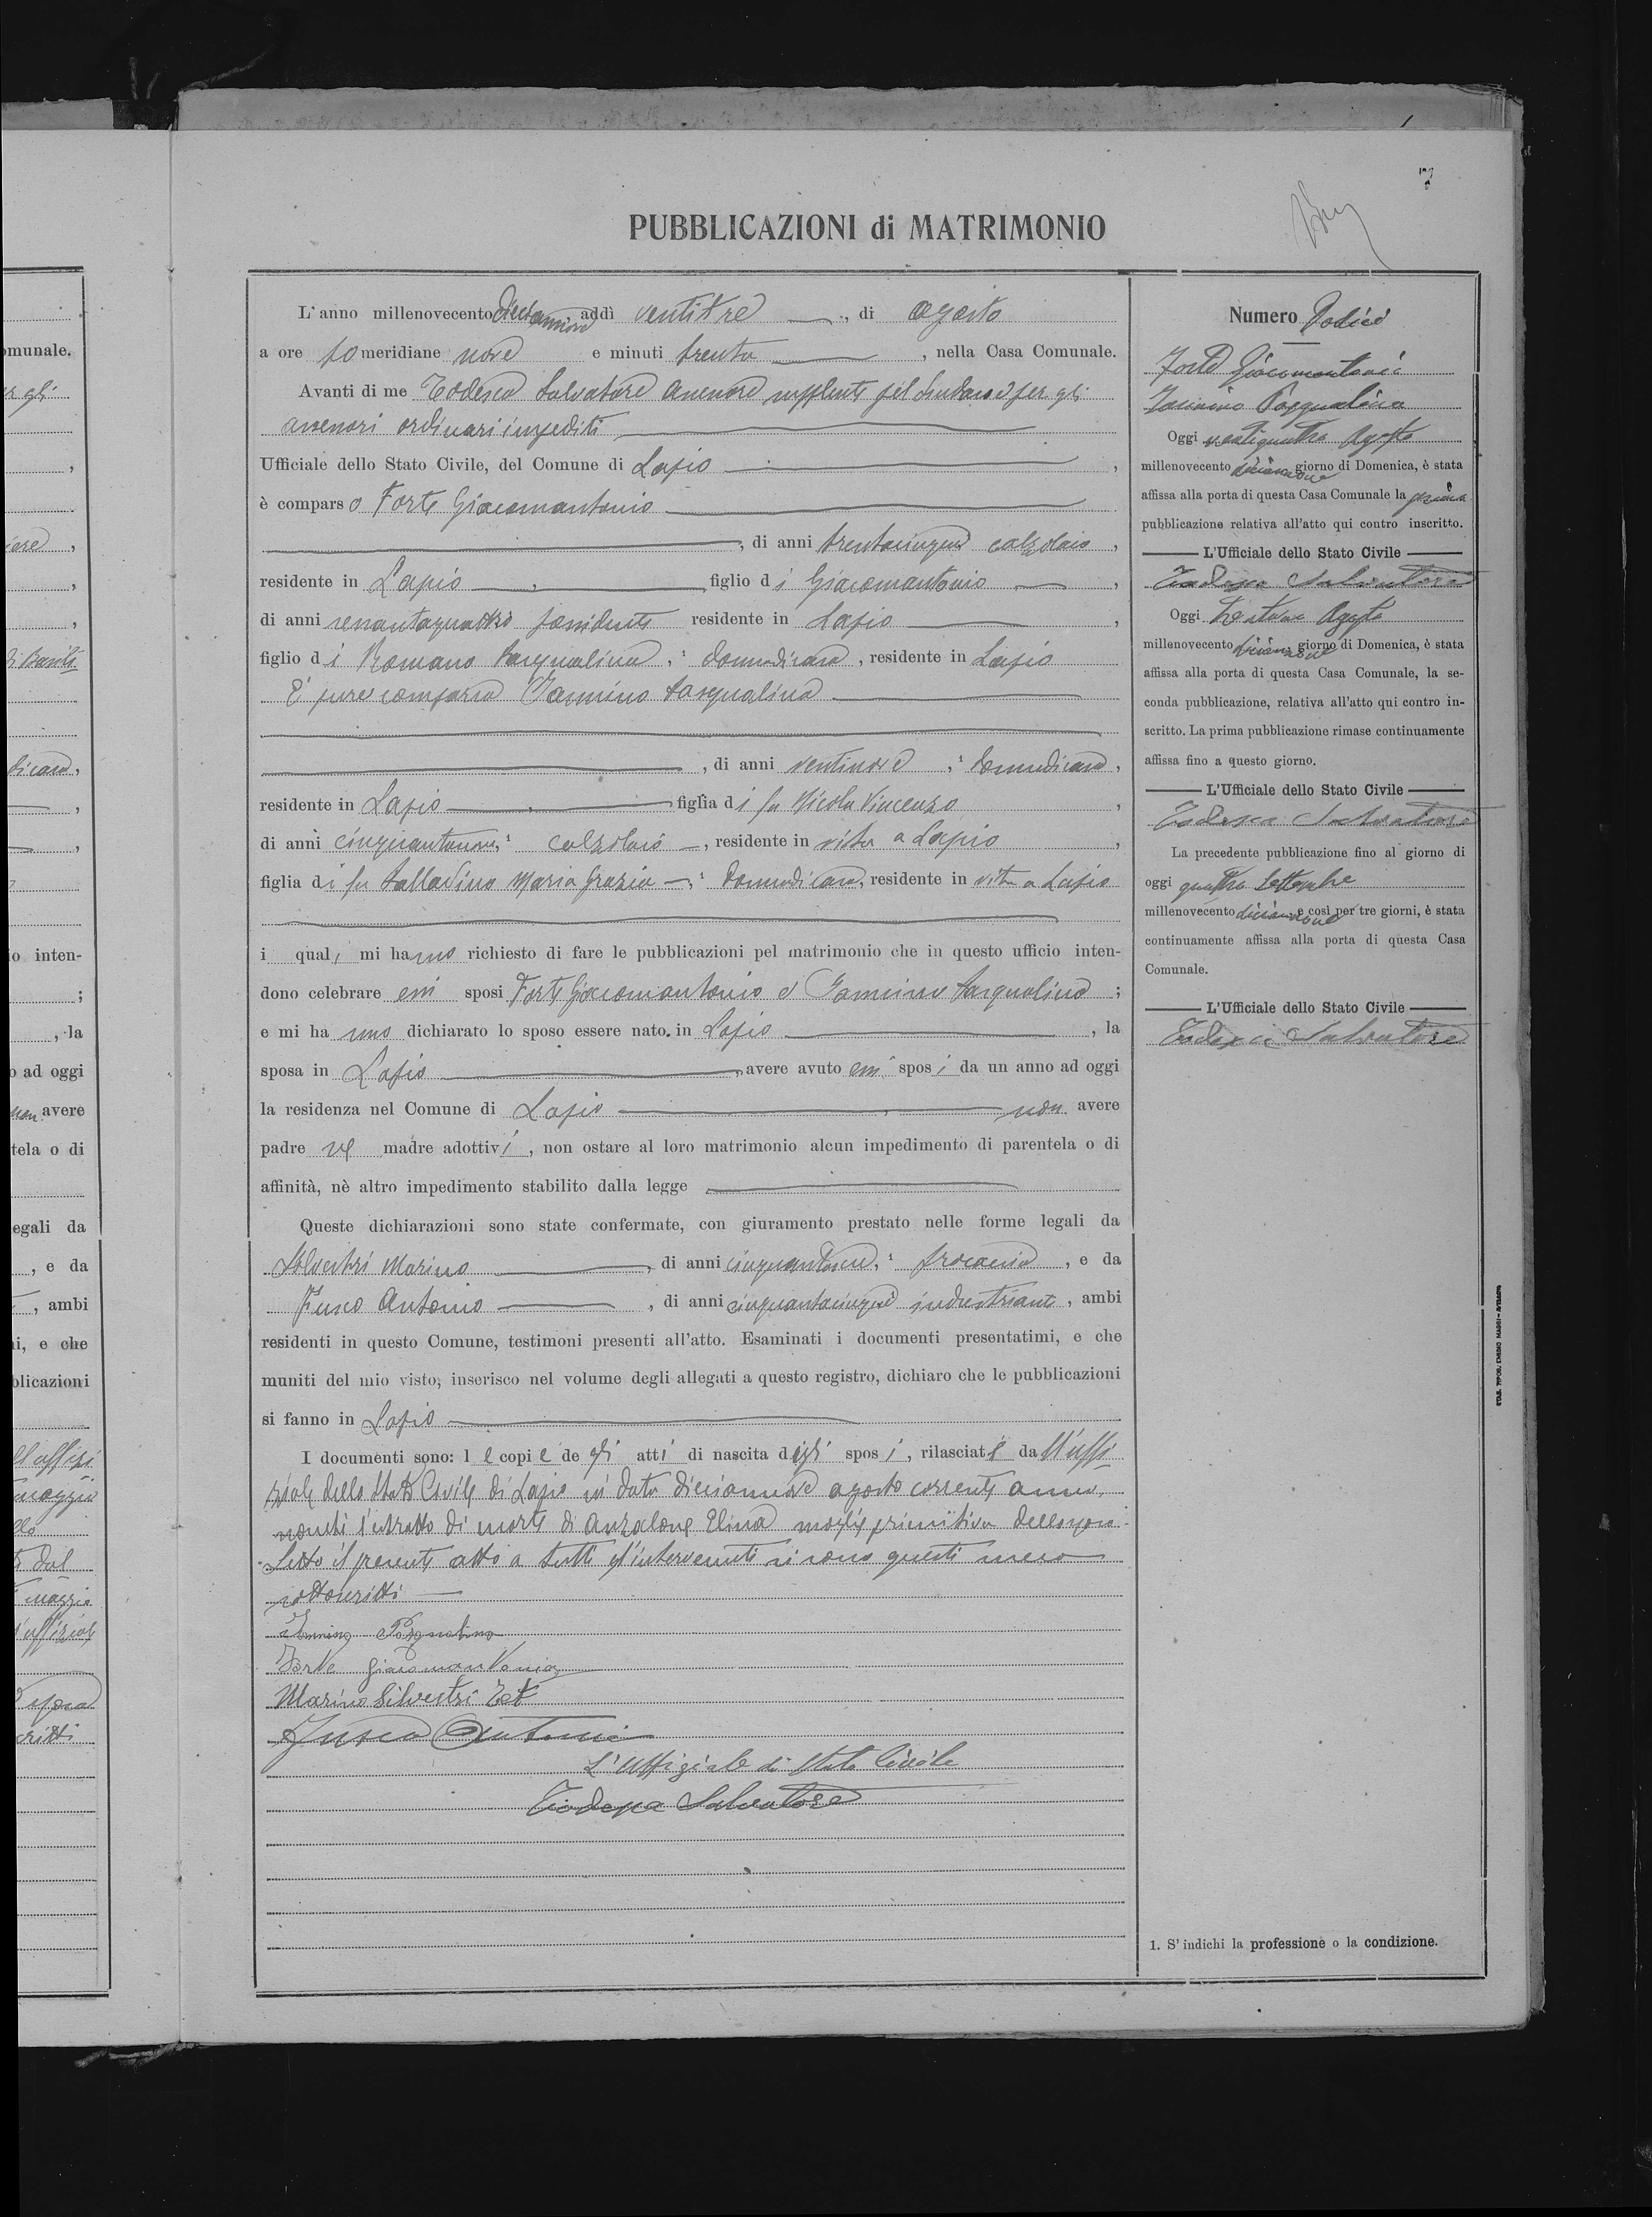 omunale.
er gli
iore ,
di Bariti
dicasa,
io inten-
;
, la
o ad oggi
non avere
tela o di
egali da
, e da
, ambi
ni, e che
blicazioni
ll'uffizi
maggio
dal
maggio
l'uffiziale
sposa
critti
7
PUBBLICAZIONI di MATRIMONIO
L'anno millenovecento diciannove addì ventitre, di agosto
a ore po meridiane nove e minuti trenta, nella Casa Comunale.
Avanti di me Todesca Salvatore assessore supplente pel Sindaco e per gli
assessori ordinari impediti
Ufficiale dello Stato Civile, del Comune di Lapio,
è comparso Forte Giacomantonio
, di anni trentacinque calzolaio,
residente in Lapio, figlio di Giacomantonio,
di anni sessantaquattro possidente residente in Lapio,
figlio di Romano Pasqualina, ¹ donnadicasa, residente in Lapio
È pure comparsa Iannino Pasqualina
, di anni ventinove, ¹ donnadicasa,
residente in Lapio, figlia di fu Nicola Vincenzo,
di anni cinquantanove, ¹ calzolaio, residente in vita a Lapio,
figlia di fu Palladino Maria Grazia, ¹ donnadicasa, residente in vita a Lapio
i quali mi hanno richiesto di fare le pubblicazioni pel matrimonio che in questo ufficio inten-
dono celebrare essi sposi Forte Giacomantonio e Iannino Pasqualina;
e mi hanno dichiarato lo sposo essere nato in Lapio, la
sposa in Lapio, avere avuto essi sposi da un anno ad oggi
la residenza nel Comune di Lapio, non avere
padre nè madre adottivi, non ostare al loro matrimonio alcun impedimento di parentela o di
affinità, nè altro impedimento stabilito dalla legge
Queste dichiarazioni sono state confermate, con giuramento prestato nelle forme legali da
Silvestri Marino, di anni, ¹ procaccia, e da
Fusco Antonio, di anni cinquantacinque industriante, ambi
residenti in questo Comune, testimoni presenti all'atto. Esaminati i documenti presentatimi, e che
muniti del mio visto, inserisco nel volume degli allegati a questo registro, dichiaro che le pubblicazioni
si fanno in Lapio
I documenti sono: le copie degli atti di nascita degli sposi, rilasciate dall'uffi
ziale dello Stato Civile di Lapio in data diciannove agosto corrente anno,
nonchè l'estratto di morte di Anzalone Elina moglie primitiva dello sposo.
Letto il presente atto a tutti gl'intervenuti si sono questi meco
sottoscritti
Iannino Pasqualina
Forte Giacomantonio
Marino Silvestri Test
Fusco Antonio
L'Uffiziale di Stato Civile
Todesca Salvatore
Numero Dodici
Forte Giacomantonio
Iannino Pasqualina
Oggi ventiquattro Agosto
millenovecento diciannove giorno di Domenica, è stata
affissa alla porta di questa Casa Comunale la prima
pubblicazione relativa all'atto qui contro inscritto.
L'Ufficiale dello Stato Civile
Todesca Salvatore
Oggi trentuno Agosto
millenovecento diciannove giorno di Domenica, è stata
affissa alla porta di questa Casa Comunale, la se-
conda pubblicazione, relativa all'atto qui contro in-
scritto. La prima pubblicazione rimase continuamente
affissa fino a questo giorno.
L'Ufficiale dello Stato Civile
Todesca Salvatore
La precedente pubblicazione fino al giorno di
oggi quattro Settembre
millenovecento diciannove e così per tre giorni, è stata
continuamente affissa alla porta di questa Casa
Comunale.
L'Ufficiale dello Stato Civile
Todesca Salvatore
1. S'indichi la professione o la condizione.
STAB. TIPOG. EMIDIO MAGGI - AVELLINO